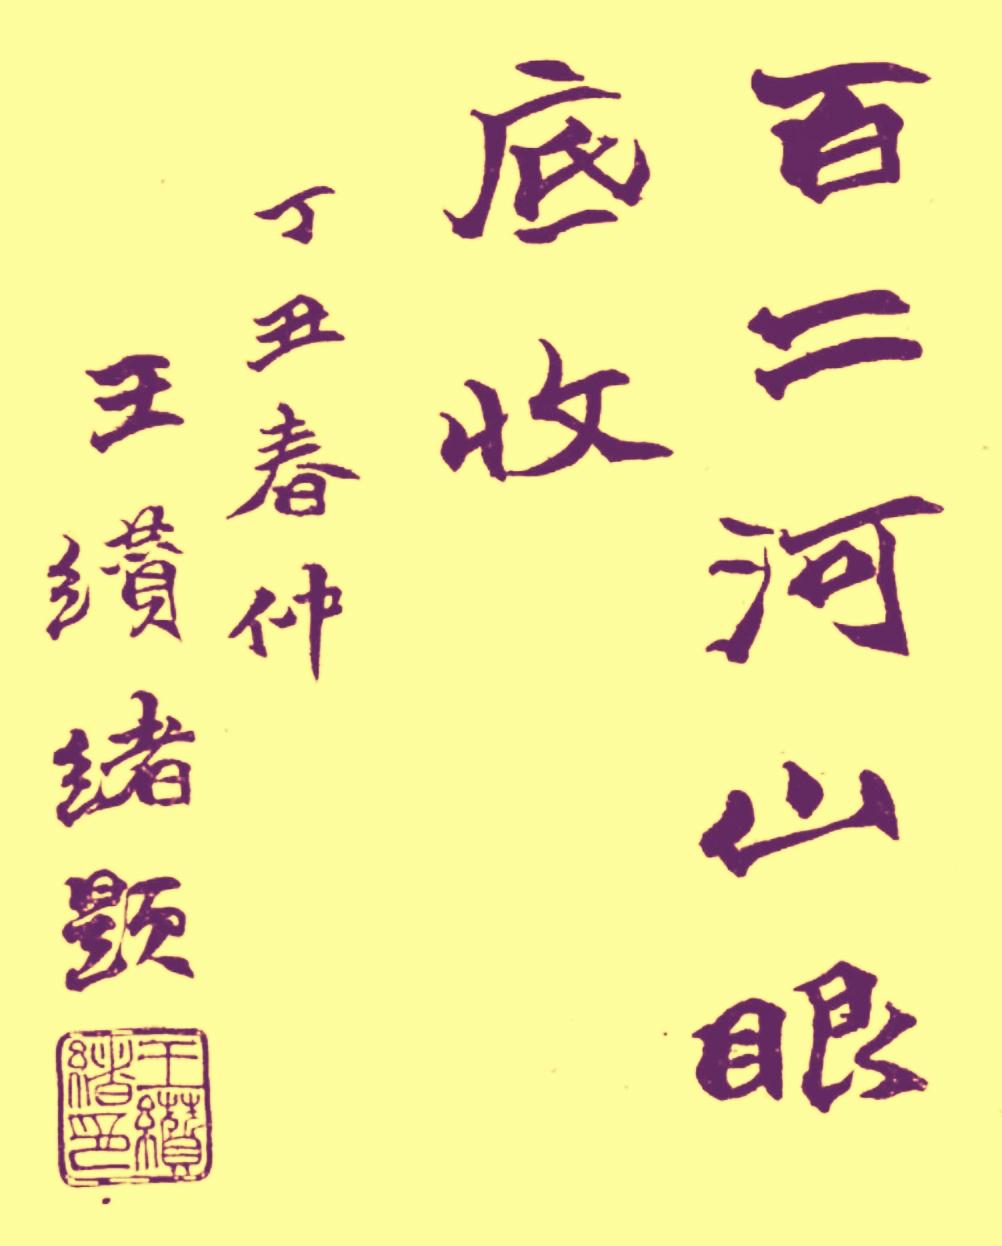 百二河山眼
底收
丁丑春仲
王纘緒題
王纘
緒印